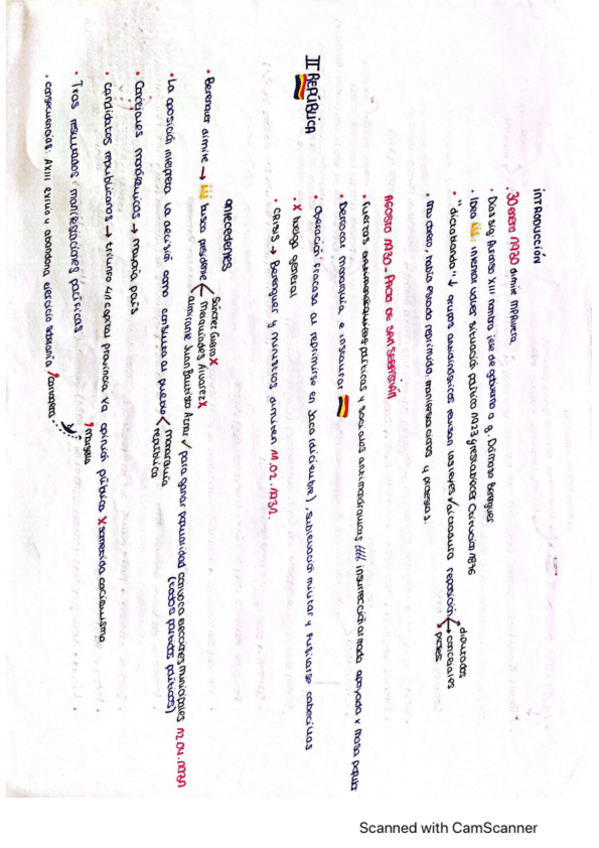 II REPÚBLICA
introducción
· 30 enero 1930 dimite MPRivera.
· Días sig. Alfonso XIII nombra jefe de gobierno a g. Dámaso Berenguer
· Idea : intentar volver situación política 1923 y restablecer Constitución 1876
· "dictablanda" ↓ grupos antidinásticos revisan las leyes / dictadura reposición diputados concejales presos
· muchedu, había estado reprimida, manifestaciones y protestas.
AGOSTO 1930 - PACTO DE SAN SEBASTIÁN
· fuerzas antimonárquicas políticas y sociales antimonárquicas //// insurrección armada apoyada x masa popular
· Derrocar monarquía e instaurar
· Operación fracasa al reprimirse en Jaca (diciembre), sublevación militar y fusilarse cabecillas
· X huelga general
· CRISIS → Berenguer y ministros dimiten 11.02.1931.
antecedentes
· Berenguer dimite → busca presidente
Sánchez Guerra X
Melquiades Álvarez X
almirante Juan Bautista Aznar ✓ para ganar popularidad convoca elecciones municipales 12.04.1931
(todos partidos políticos)
· La oposición interpreta la decisión como consulta al pueblo monarquía república
· Concejales monárquicos → mayoría país
· candidatos republicanos → triunfo 41 capital provincia va opinión pública X sometida caciquismo
· Tras resultados, manifestaciones pacíficas.
· consecuencias: AXIII exilio x abandona ejercicio soberanía Cartagena
Marsella
Scanned with CamScanner